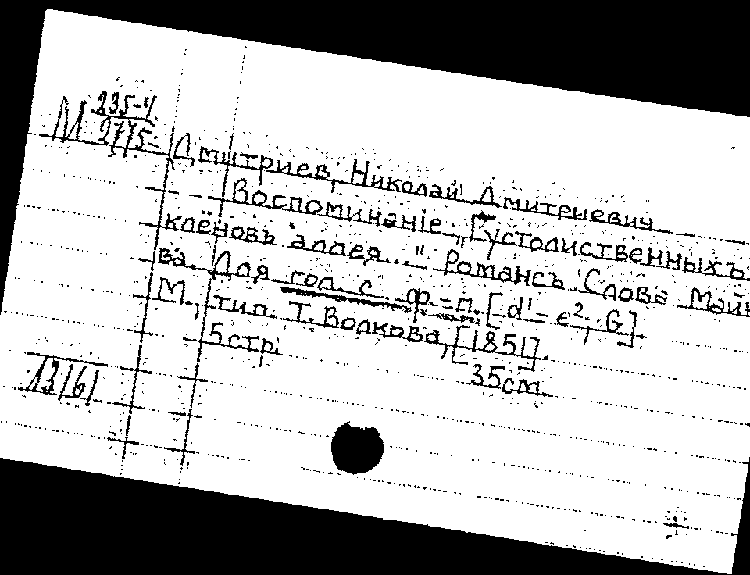 М 235-4
2775
Дмитриев, Николай Дмитриевич
Воспоминанiе. „Густолиственныхъ
клёновъ аллея..." Романсъ. Слова Май-
ва. Для гол. с ф-п. [d¹-e², G].
М., тип. Т. Волкова, [1851].
5 стр. 35 см.
13161